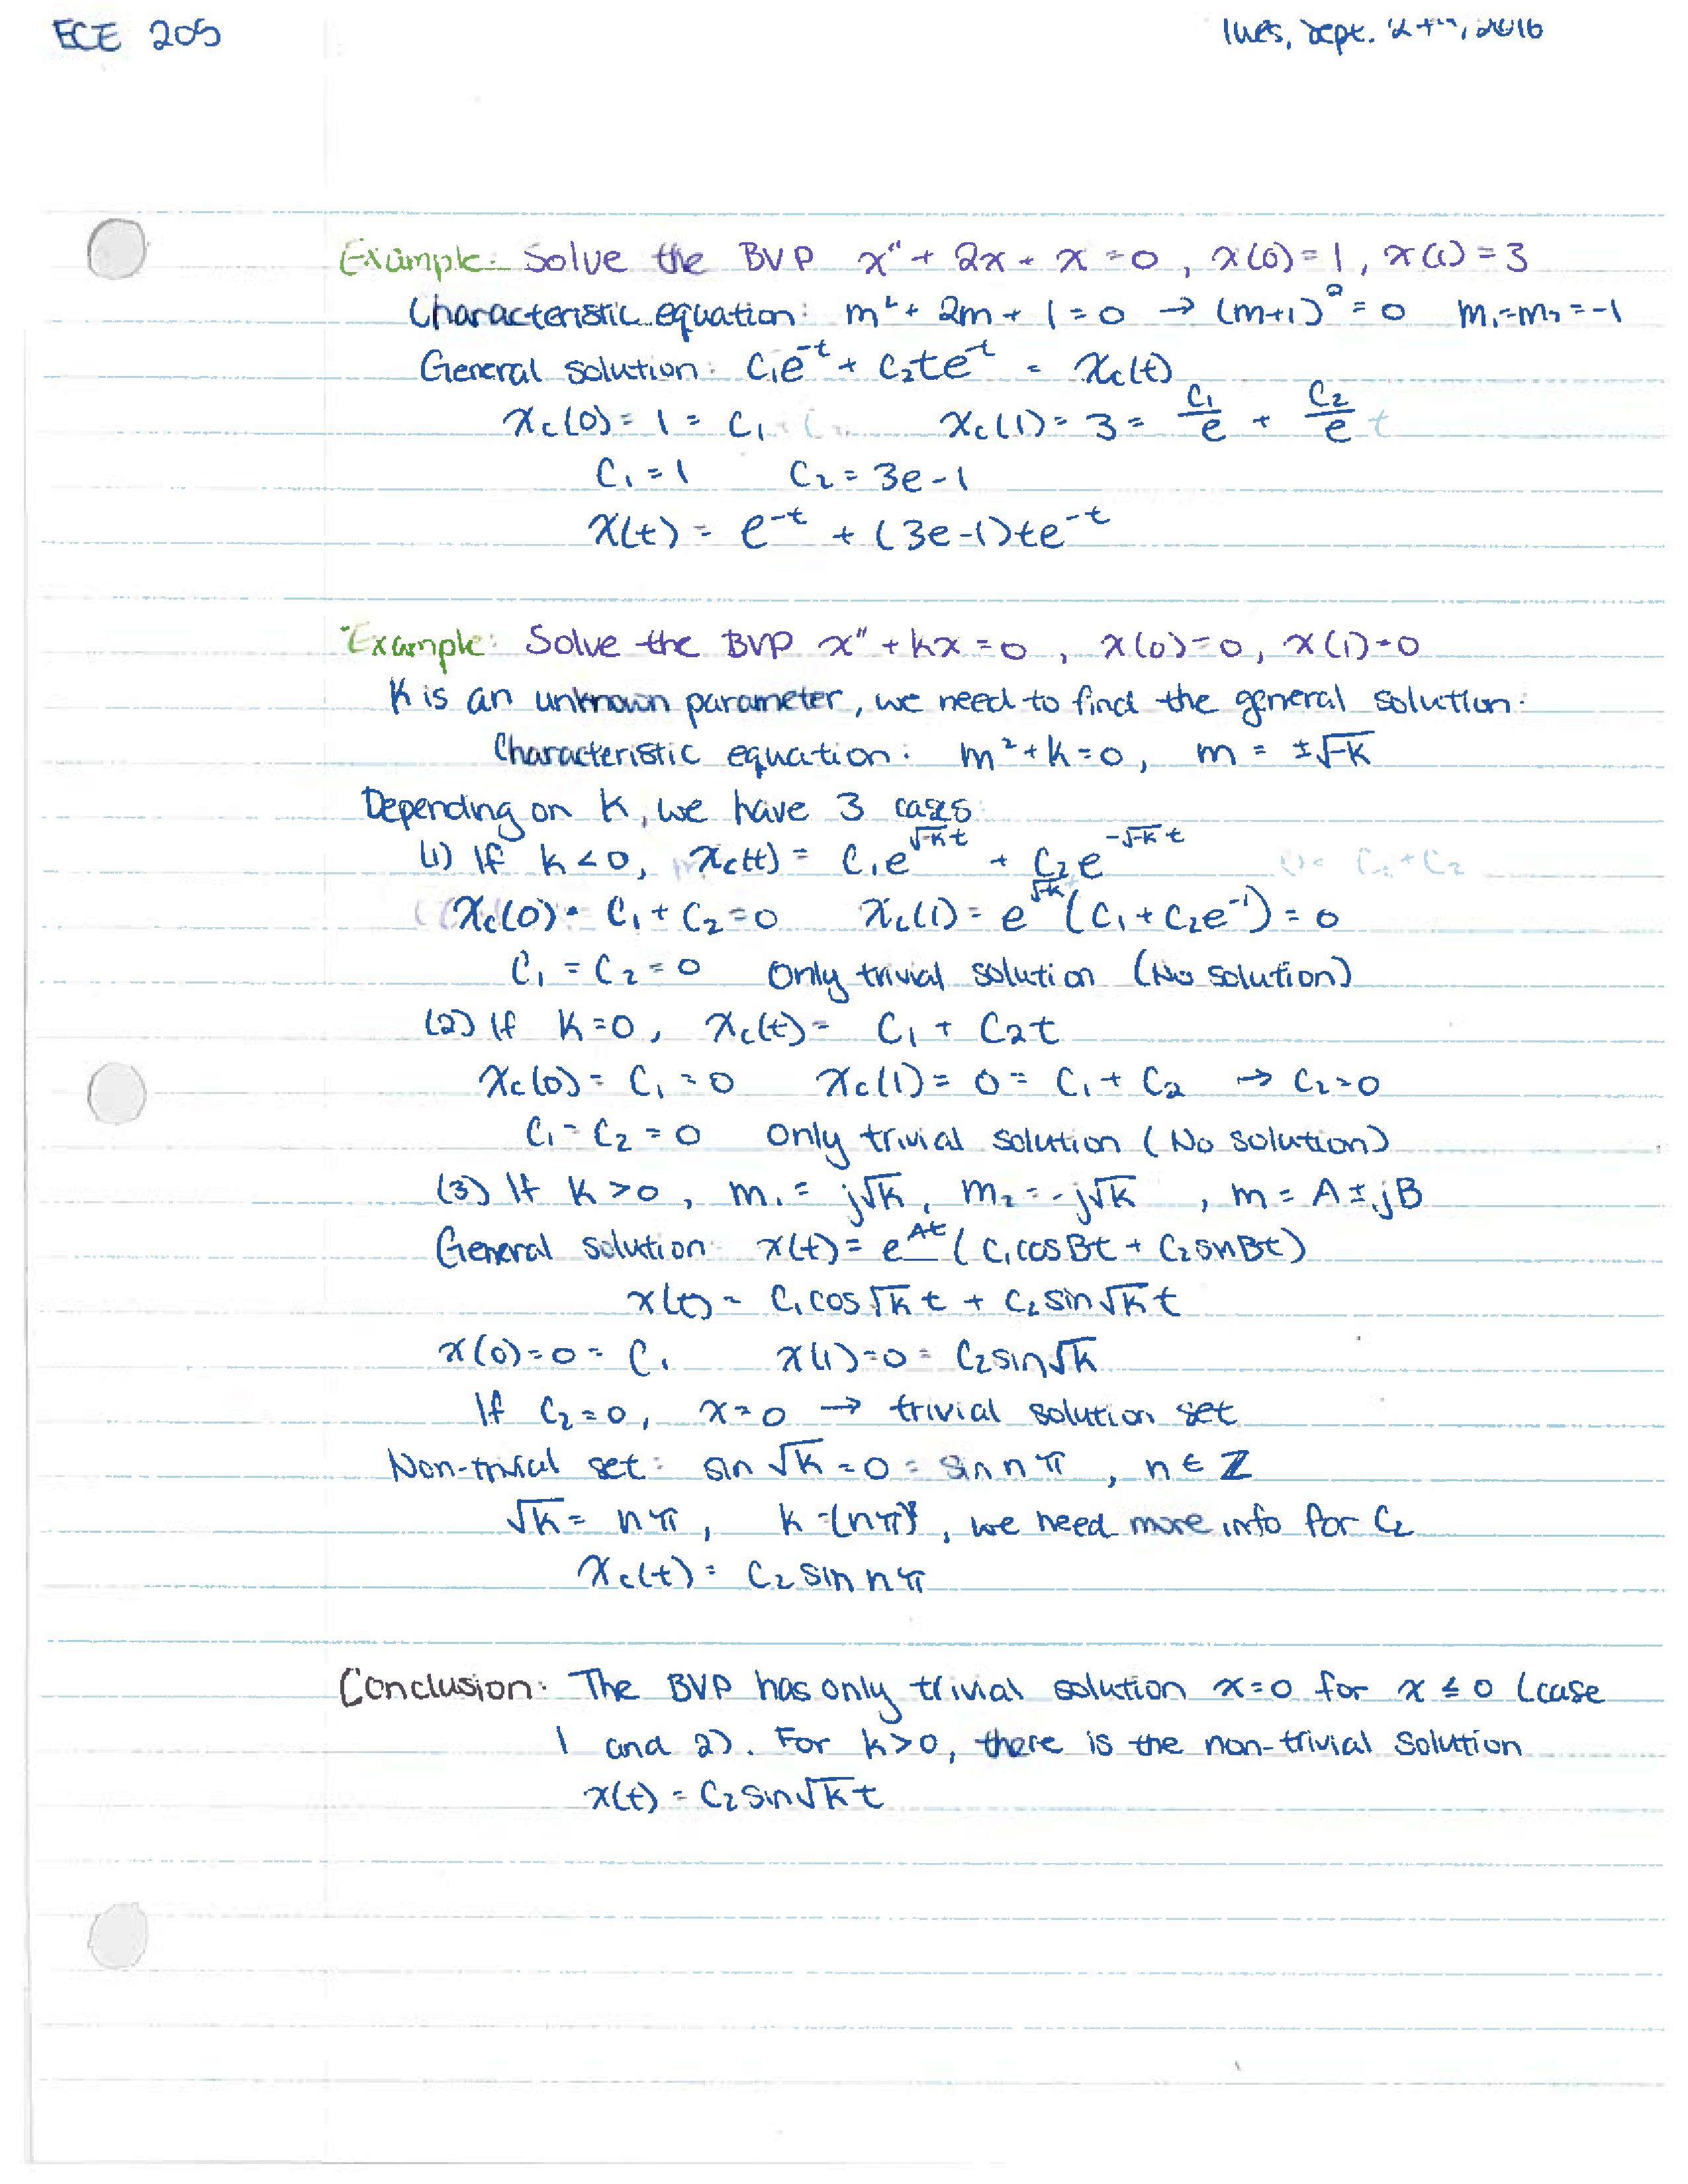 ECE 205
Tues, Sept. 27th, 2016
Example: Solve the BVP x'' + 2x + x = 0, x(0) = 1, x(1) = 3
Characteristic equation: m² + 2m + 1 = 0 → (m+1)² = 0 m₁ = m₂ = -1
General solution: c₁e^-t + c₂te^-t = x_c(t)
x_c(0) = 1 = c₁ x_c(1) = 3 = c₁/e + c₂/e
c₁ = 1 c₂ = 3e-1
x(t) = e^-t + (3e-1)te^-t
Example: Solve the BVP x'' + kx = 0, x(0) = 0, x(1) = 0
K is an unknown parameter, we need to find the general solution:
Characteristic equation: m² + k = 0, m = ±√-K
Depending on K, we have 3 cases:
(1) If k < 0, x_c(t) = c₁e^(√-K t) + c₂e^(-√-K t)
x_c(0) = c₁ + c₂ = 0 x_c(1) = e^√-k (c₁ + c₂e^-1) = 0
c₁ = c₂ = 0 Only trivial solution (No solution)
(2) If K = 0, x_c(t) = c₁ + c₂t
x_c(0) = c₁ = 0 x_c(1) = 0 = c₁ + c₂ → c₂ = 0
c₁ = c₂ = 0 only trivial solution (No solution)
(3) If K > 0, m₁ = j√k, m₂ = -j√k, m = A ± jB
General solution: x(t) = e^At (c₁cosBt + c₂sinBt)
x(t) = c₁cos√k t + c₂sin√k t
x(0) = 0 = c₁ x(1) = 0 = c₂sin√k
If c₂ = 0, x = 0 → trivial solution set
Non-trivial set: sin √k = 0 = sin nπ, n ∈ ℤ
√k = nπ, k = (nπ)², we need more info for c₂
x_c(t) = c₂ sin nπ
Conclusion: The BVP has only trivial solution x=0 for x ≤ 0 (case
1 and 2). For k>0, there is the non-trivial solution
x(t) = c₂sin√k t